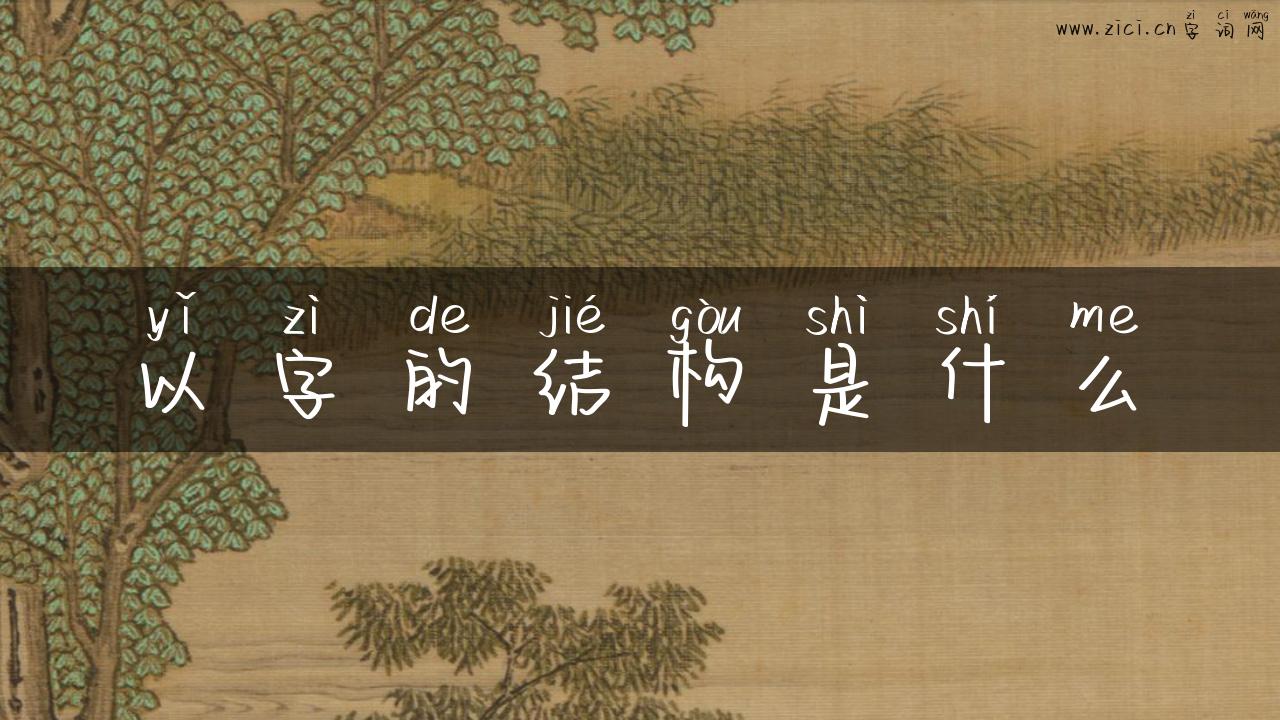 zì cí wǎng
www.zici.cn字词网
yǐ zì de jié gòu shì shí me
以字的结构是什么